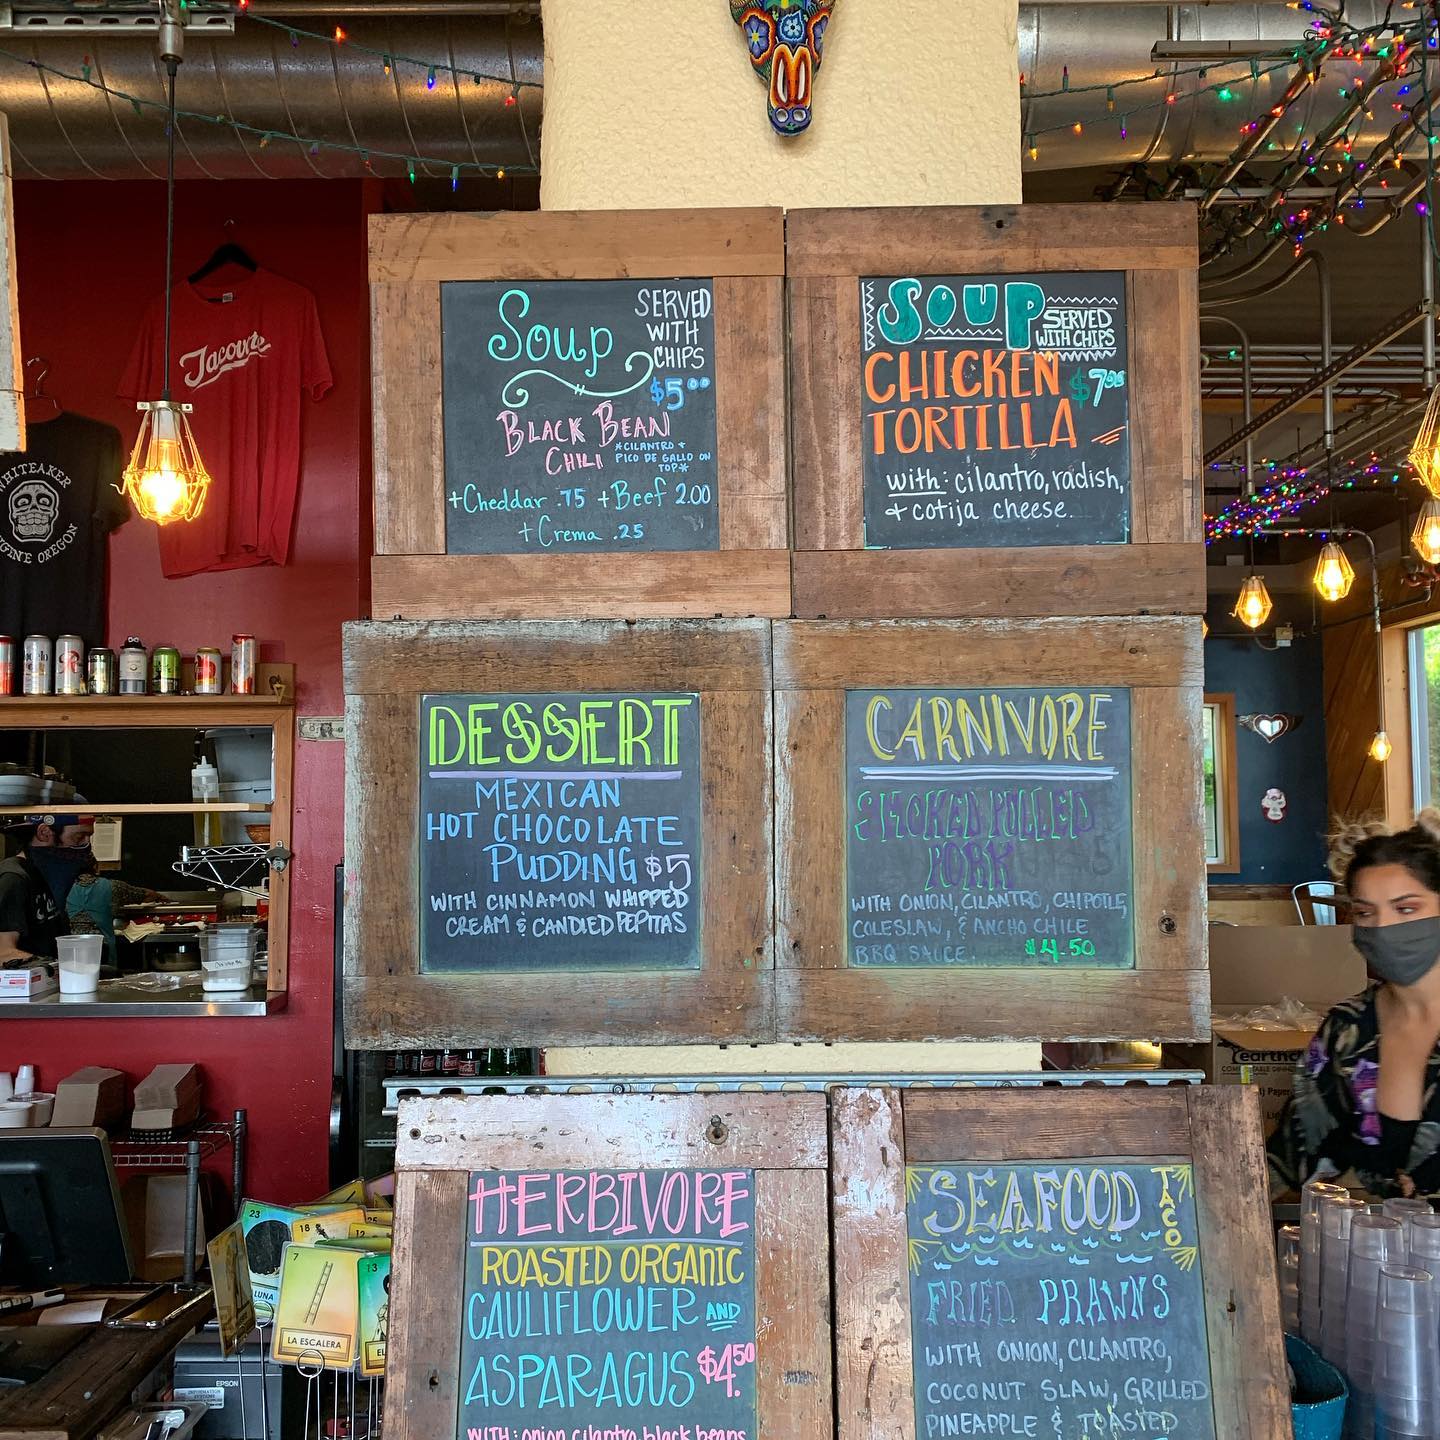 Soup
SERVED
WITH
CHIPS
$5.00
BLACK BEAN
CHILI
*CILANTRO +
PICO DE GALLO ON
TOP*
+Cheddar .75 +Beef 2.00
+Crema .25
SOUP
SERVED
WITH CHIPS
CHICKEN
$7.00
TORTILLA
with: cilantro, radish,
+ cotija cheese.
DESSERT
MEXICAN
HOT CHOCOLATE
PUDDING $5
WITH CINNAMON WHIPPED
CREAM & CANDIED PEPITAS
CARNIVORE
SMOKED PULLED
PORK
WITH ONION, CILANTRO, CHIPOTLE
COLESLAW, & ANCHO CHILE
BBQ SAUCE. $4.50
HERBIVORE
ROASTED ORGANIC
CAULIFLOWER AND
ASPARAGUS $4.50
WITH: onion, cilantro, black beans
SEAFOOD
TACO
FRIED PRAWNS
WITH ONION, CILANTRO,
COCONUT SLAW, GRILLED
PINEAPPLE & TOASTED
Tacovore
WHITEAKER
EUGINE OREGON
23
LUNA
18
25
12
7
LA ESCALERA
13
EL
EPSON
earthch